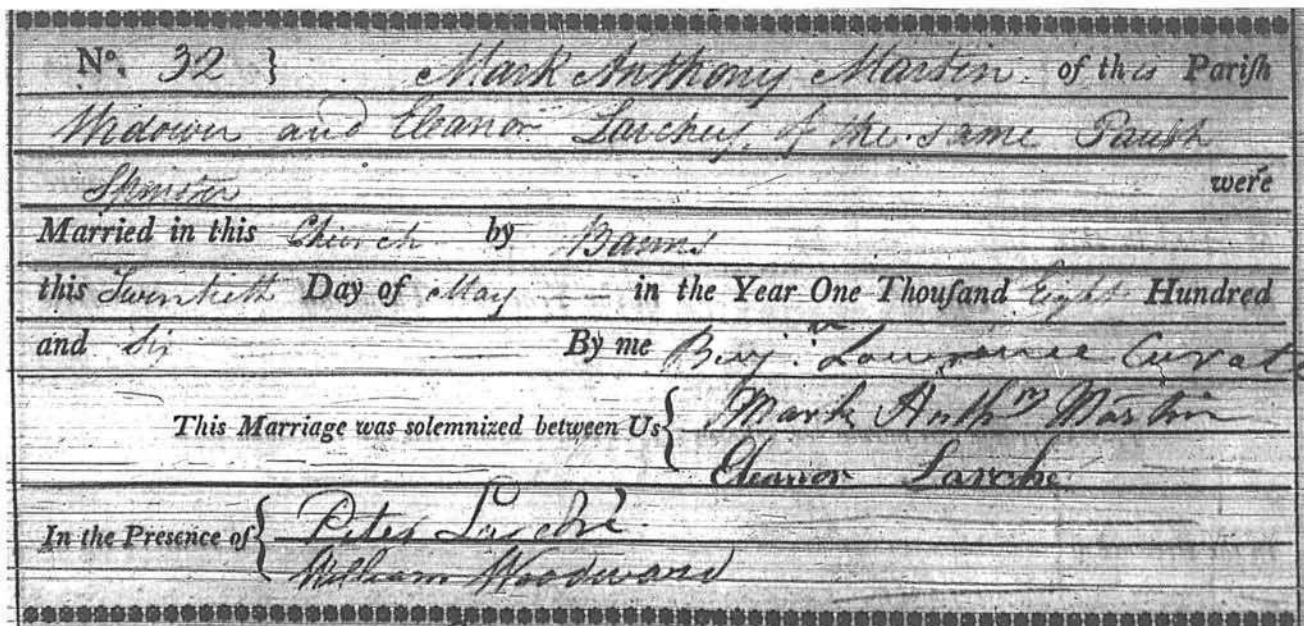 No. 32 } Mark Anthony Martin of this Pariſh
Widower and Eleanor Larchey, of the same Parish
Spinster were
Married in this Church by Banns
this Twentieth Day of May — in the Year One Thouſand Eight Hundred
and Six By me Benjn. Lawrence Curate
This Marriage was solemnized between Us { Mark Anthy Martin
Eleanor Larche
In the Presence of { Peter Larché
William Woodward